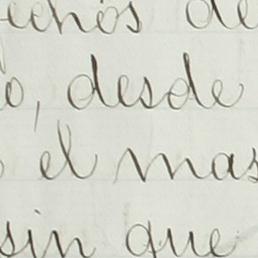 echos de
o, desde
el mas
sin que